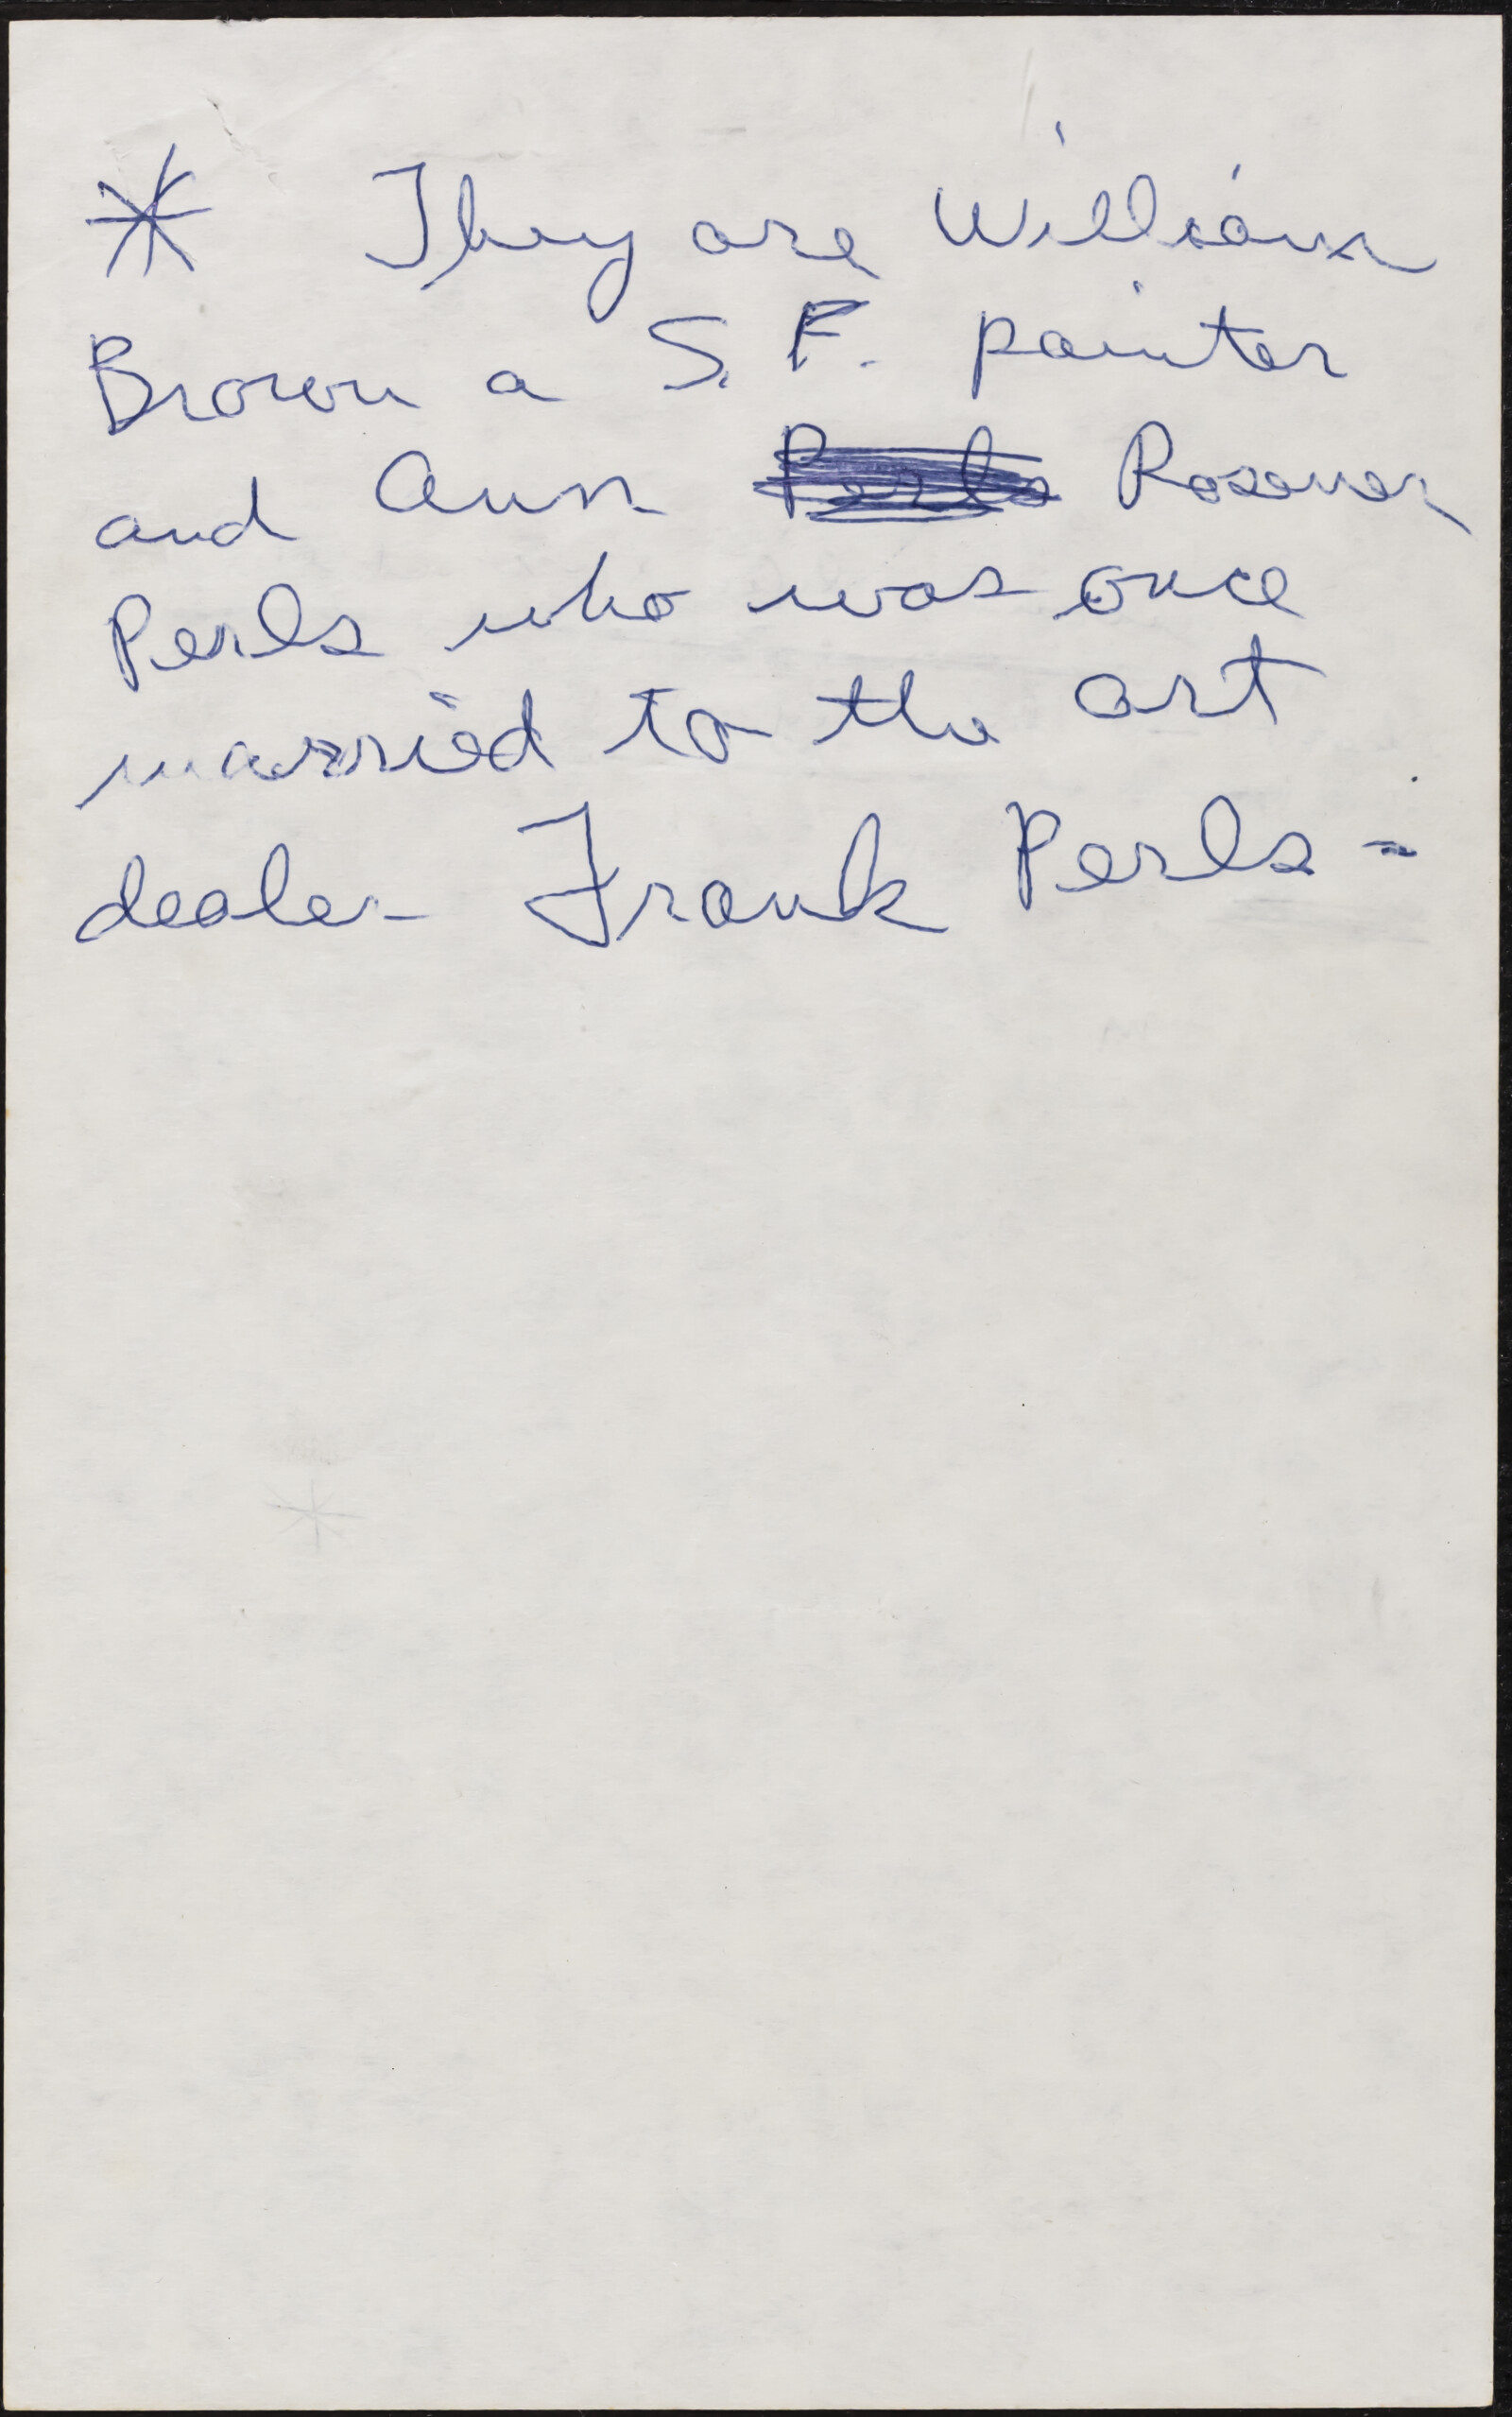 * They are William
Brown a S. F. painter
and Ann Perls Rosener
Perls who was once
married to the art
dealer Frank Perls -